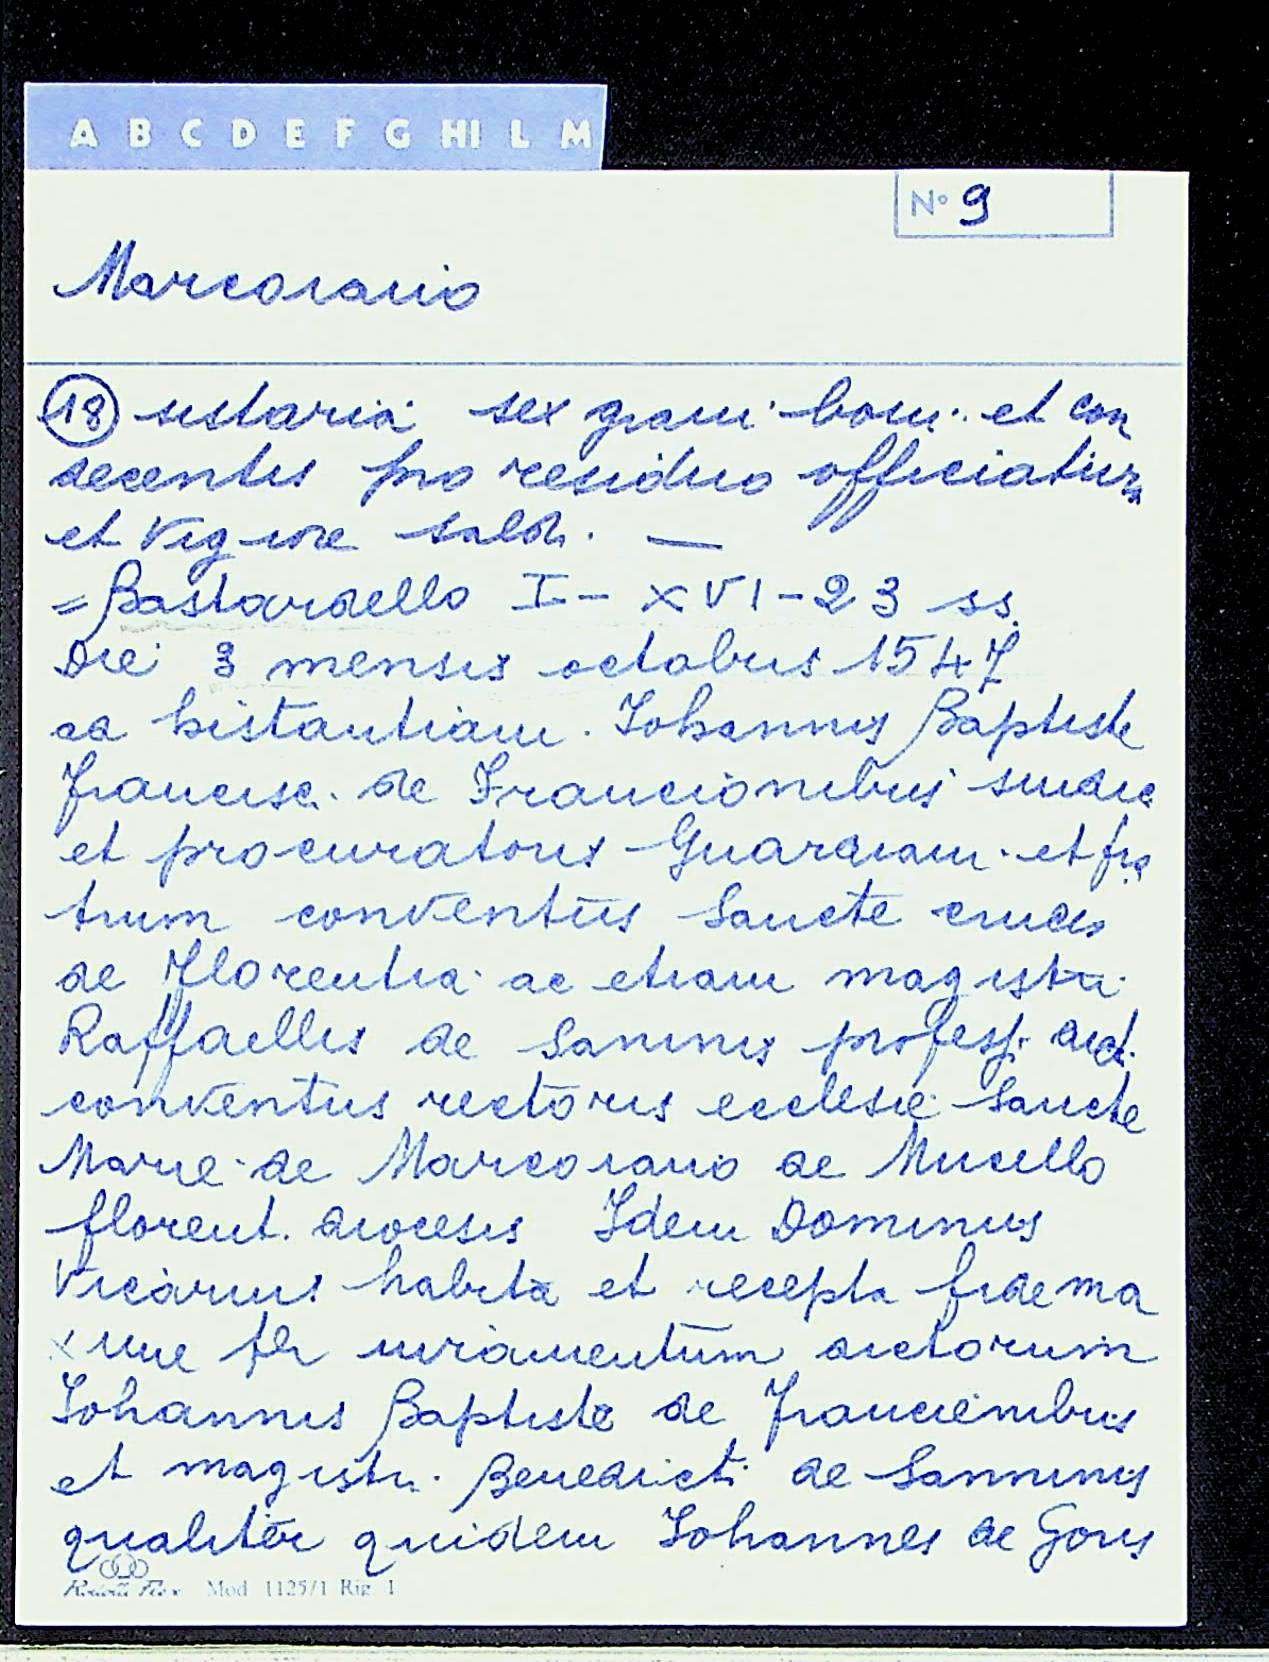 A B C D E F G HI L M
N° 9
Marcoiano
(18) sistaria sex grani boni et con
decentis pro residuo officiatur
et vigore sald. —
= Bastardello I - XVI - 23 ss.
Die 3 mensis octobris 1547
ad histantiam. Johannis Baptiste
Francisc. de Francionibus sindic
et procuratoris Guardiani et fra
trum conventus Sancte crucis
de Florentia ac etiam magistri
Raffaellis de Saninis profess. dict.
conventus rectoris ecclesie Sancte
Marie de Marcoiano de Mucello
florent. diocesis Idem Dominus
Vicarius habita et recepta fide ma
xime per iuramentum dictorum
Johannis Baptiste de Francionibus
et magistri. Benedicti de Sanninis
qualiter quidem Johannes de Goris
Mod 1125/1 Rig 1